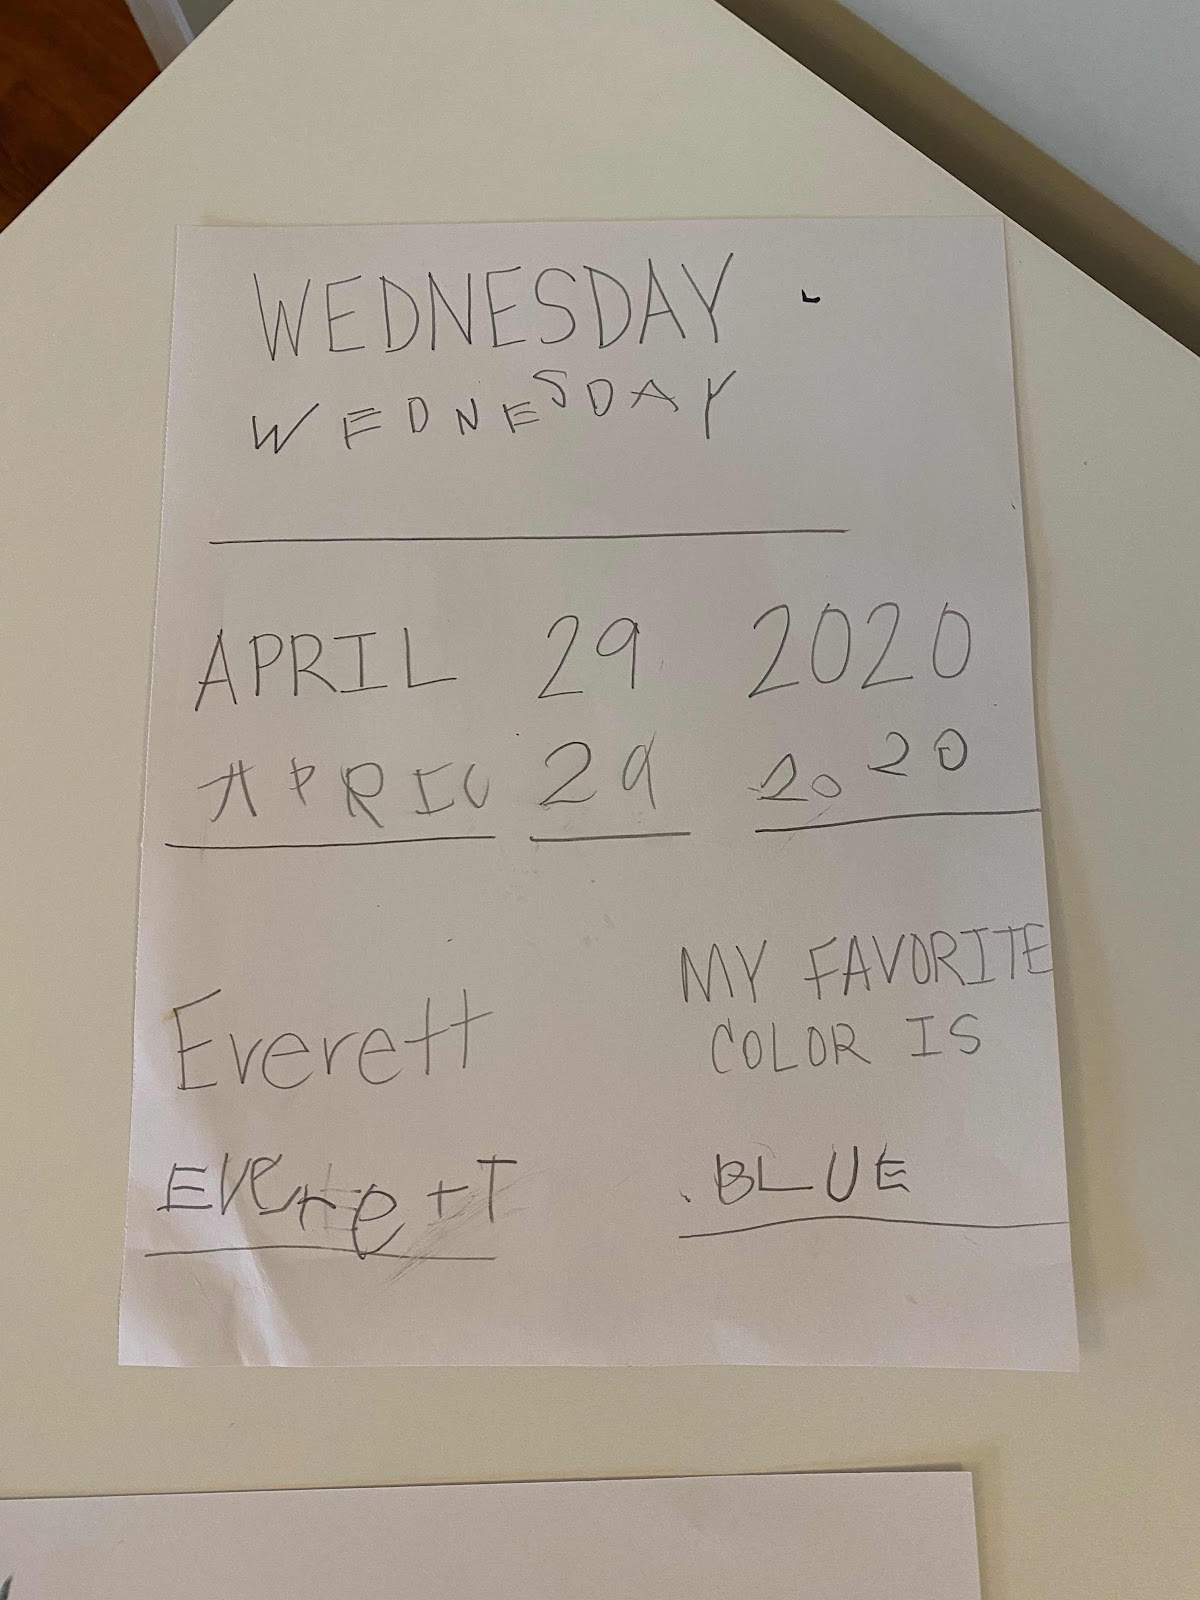 WEDNESDAY
WEDNESDAY
APRIL 29 2020
APRIL 29 2020
MY FAVORITE
COLOR IS
Everett
EVerett
BLUE